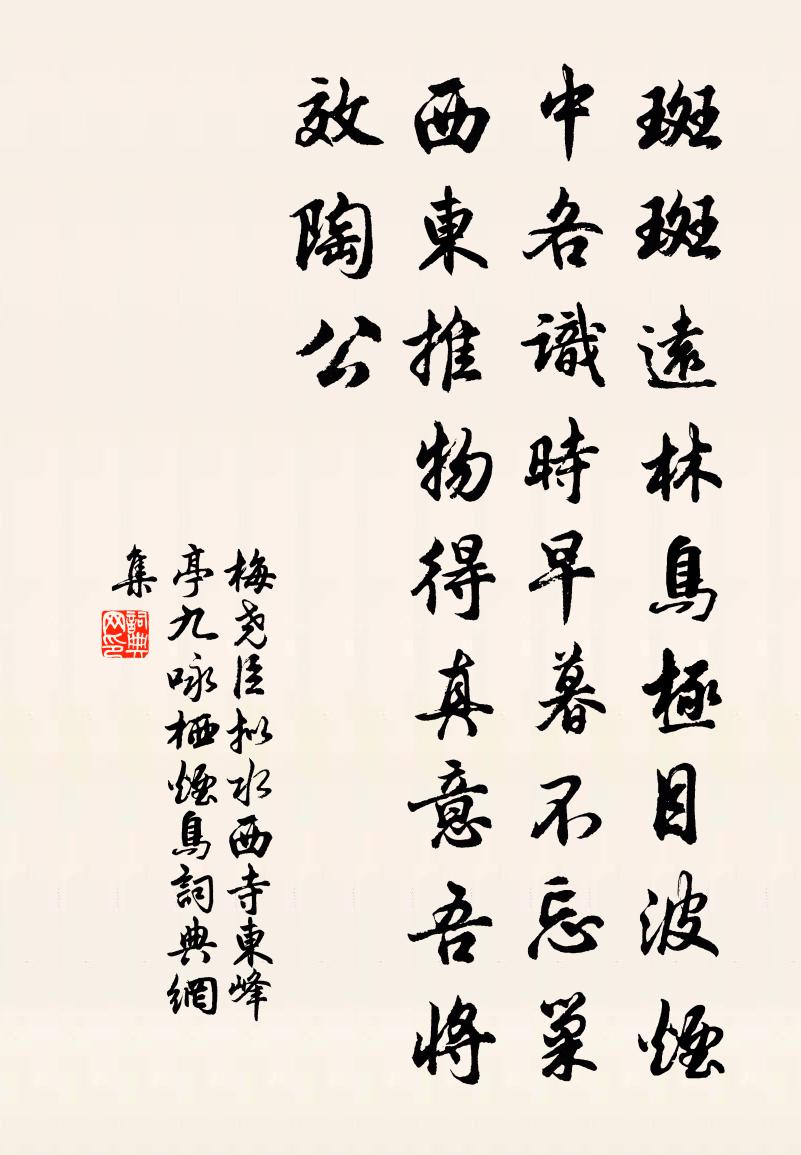 斑斑遠林鳥極目波煙
中各識時早暮不忘巢
西東推物得真意吾將
效陶公
梅尧臣拟水西寺東峰
亭九咏栖煙鳥詞典網
集
詞典
网印